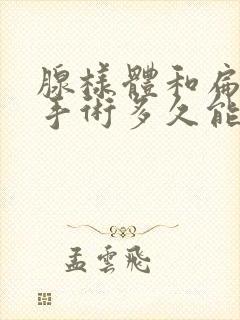 腺樣體和扁
手術多久能
孟雲飛